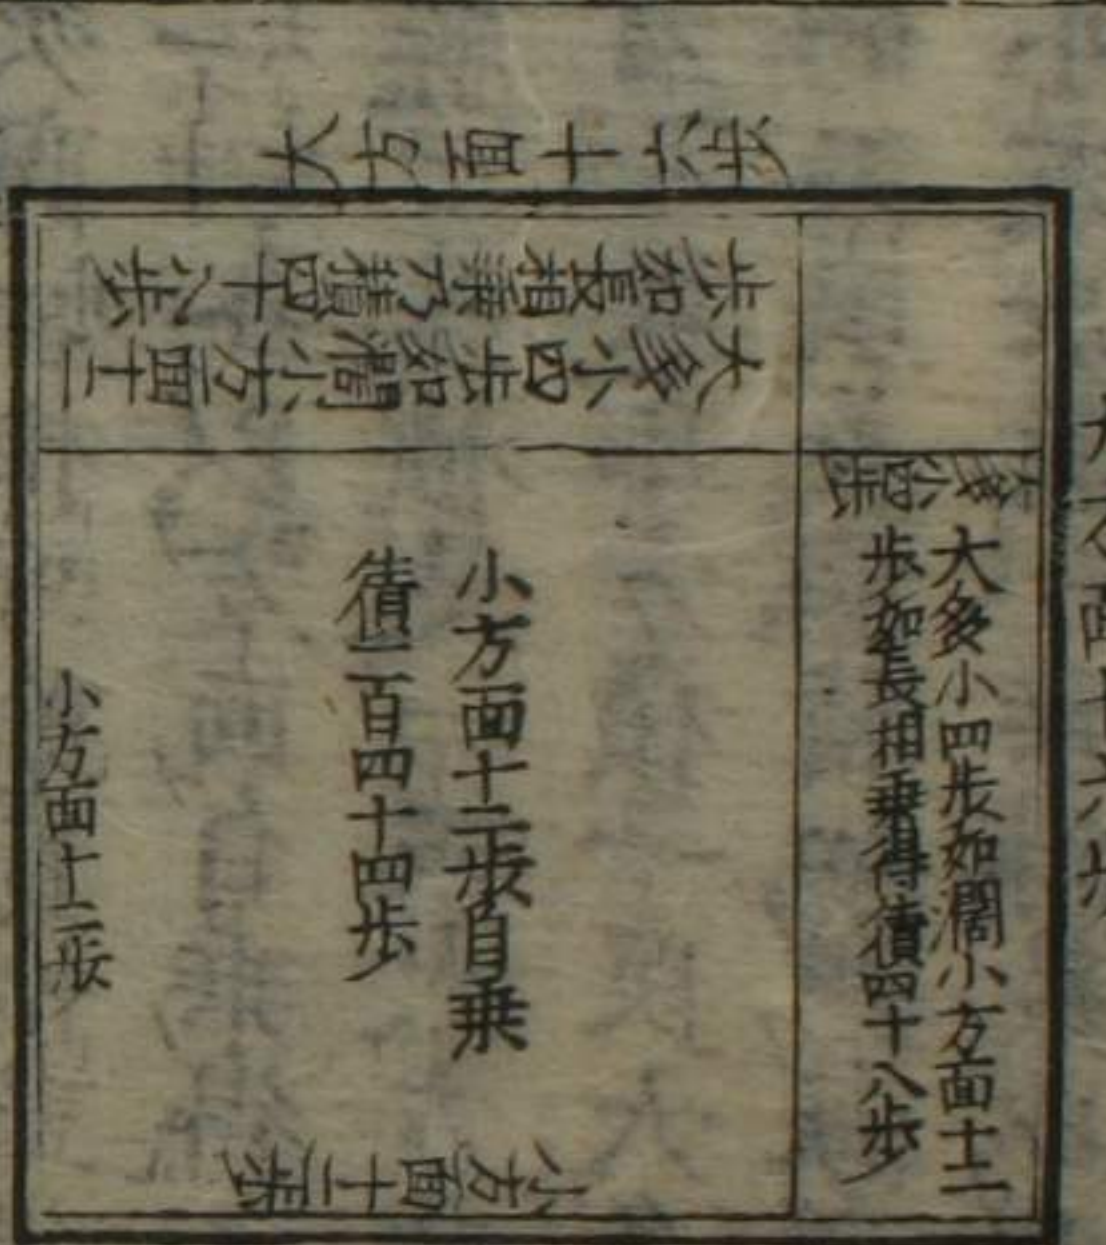 大方面十六步
大方面十六步
大多小四步如濶小方面十二
步如長相乗乃積四十八步
大多小四步
大多小四步如濶小方面十二
步如長相乗得積四十八步
小方面十二步自乗
積一百四十四步
小方面十二步
小方面十二步